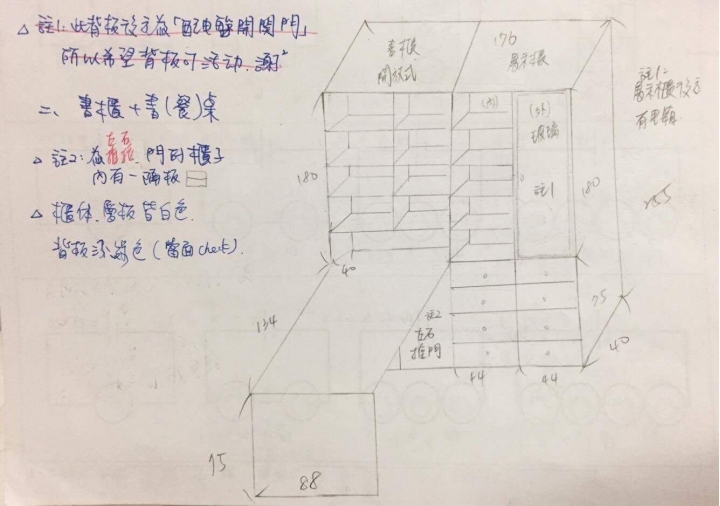 △ 註1: 此背板設定為「配電盤開関門」
所以希望背板可活動. 謝²
二、書櫃+書(餐)桌
△ 註2: 為左右推拉門的櫃子
內有一隔板
△ 櫃体.層板皆白色.
背板淺綠色(當面check).
書櫃
開放式
176
展示櫃
(內)
(外)
玻璃
註1
註1:
展示櫃
有電鎖
180
180
255
40
134
註2
左右
推門
75
40
44
44
75
88